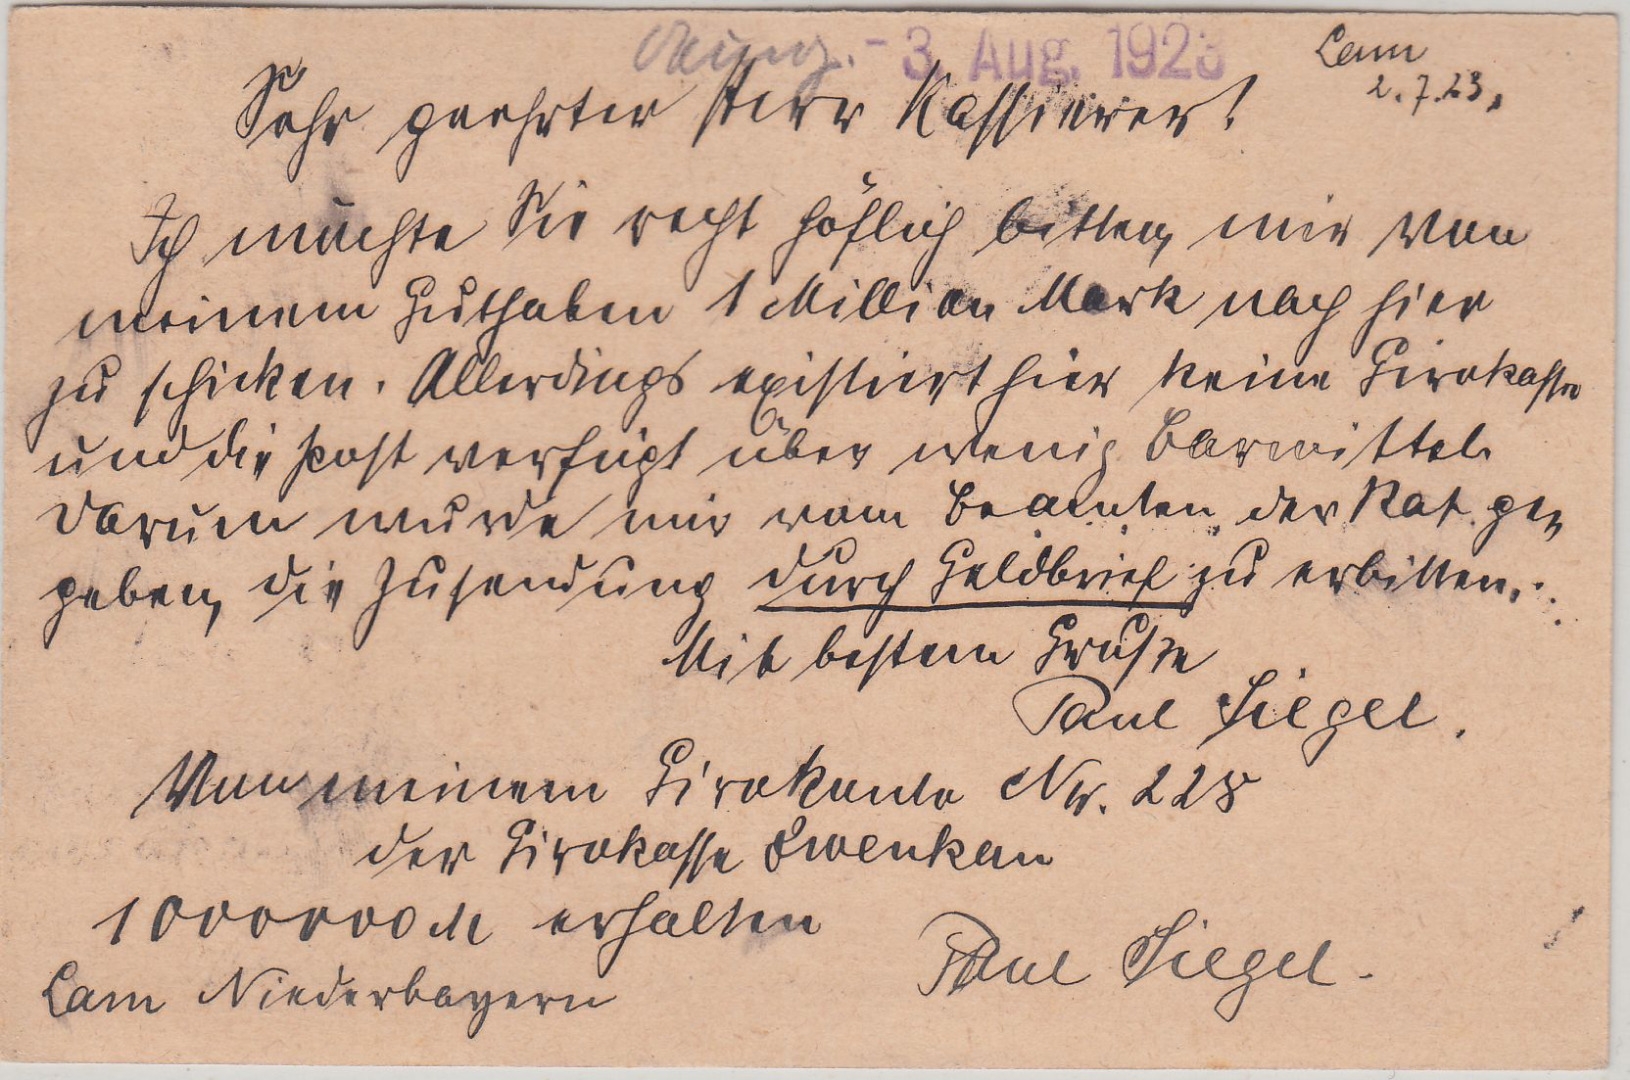 - 3. Aug. 1923
Lam
2.7.23.
Sehr geehrter Herr Kassierer!
Ich möchte Sie recht höflich bitten, mir von
meinem Guthaben 1 Million Mark nach hier
zu schicken. Allerdings existiert hier keine Girokasse
und die Post verfügt über wenig Barmittel.
Darum wurde mir vom Beamten der Rat ge-
geben, die Zusendung durch Geldbrief zu erbitten.
Mit bestem Gruße
Paul Siegel.
Von meinem Girokonto Nr. 228
der Girokasse Zwenkau
1000000 M erhalten
Paul Siegel.
Lam Niederbayern